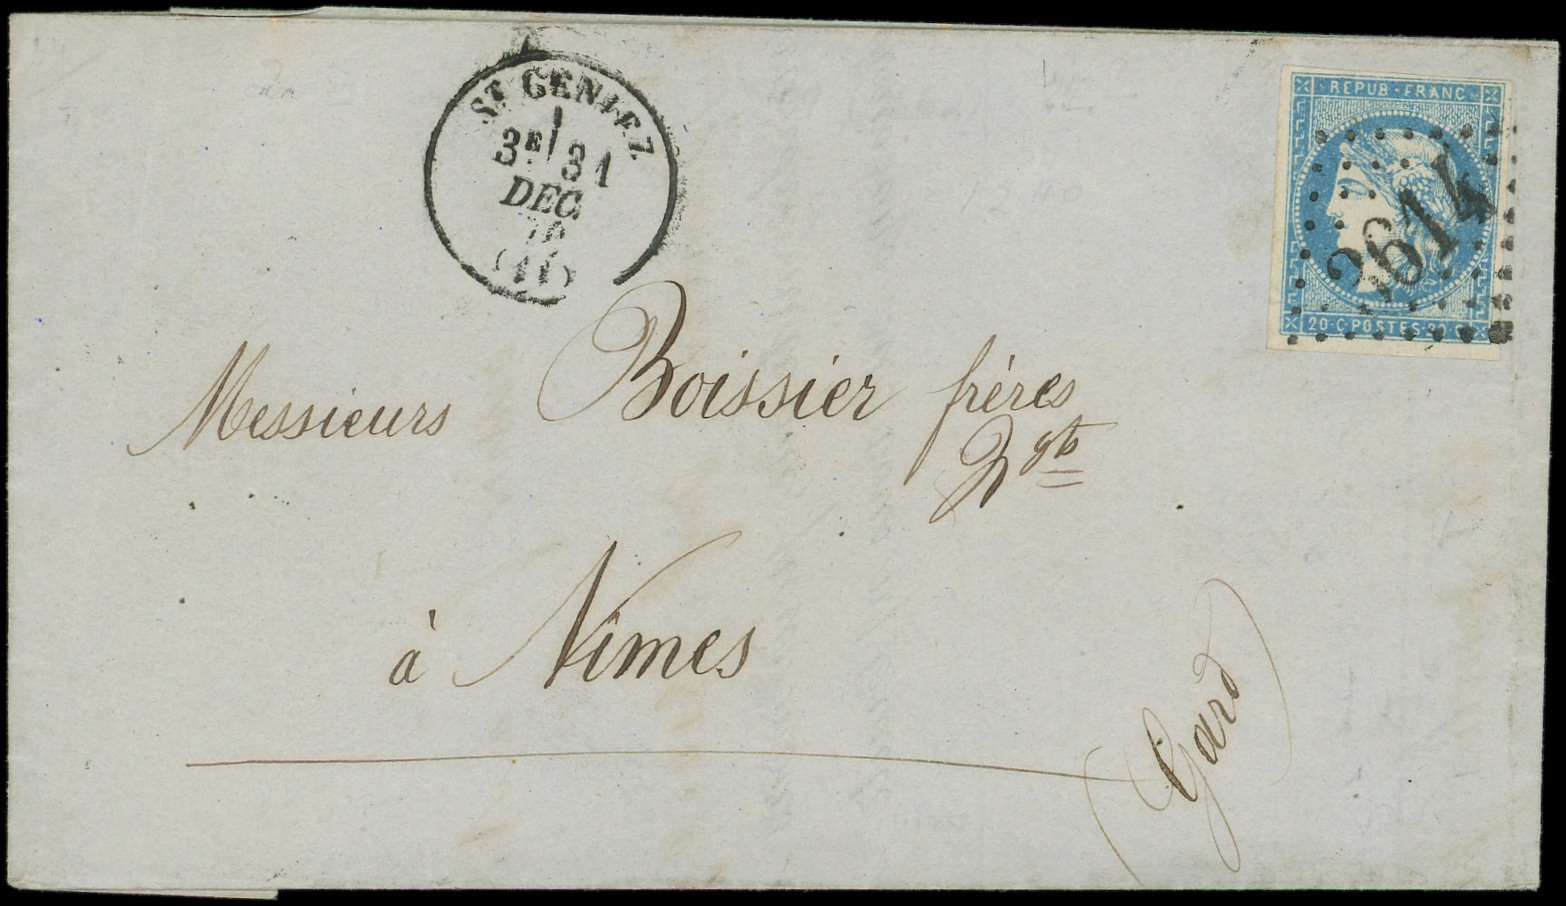 ST GENIEZ
3E 31
DEC.
70
(11)
REPUB·FRANC·
3614
20·C·POSTES·20·C
Messieurs Boissier frères
Ngts
à Nîmes
Gard